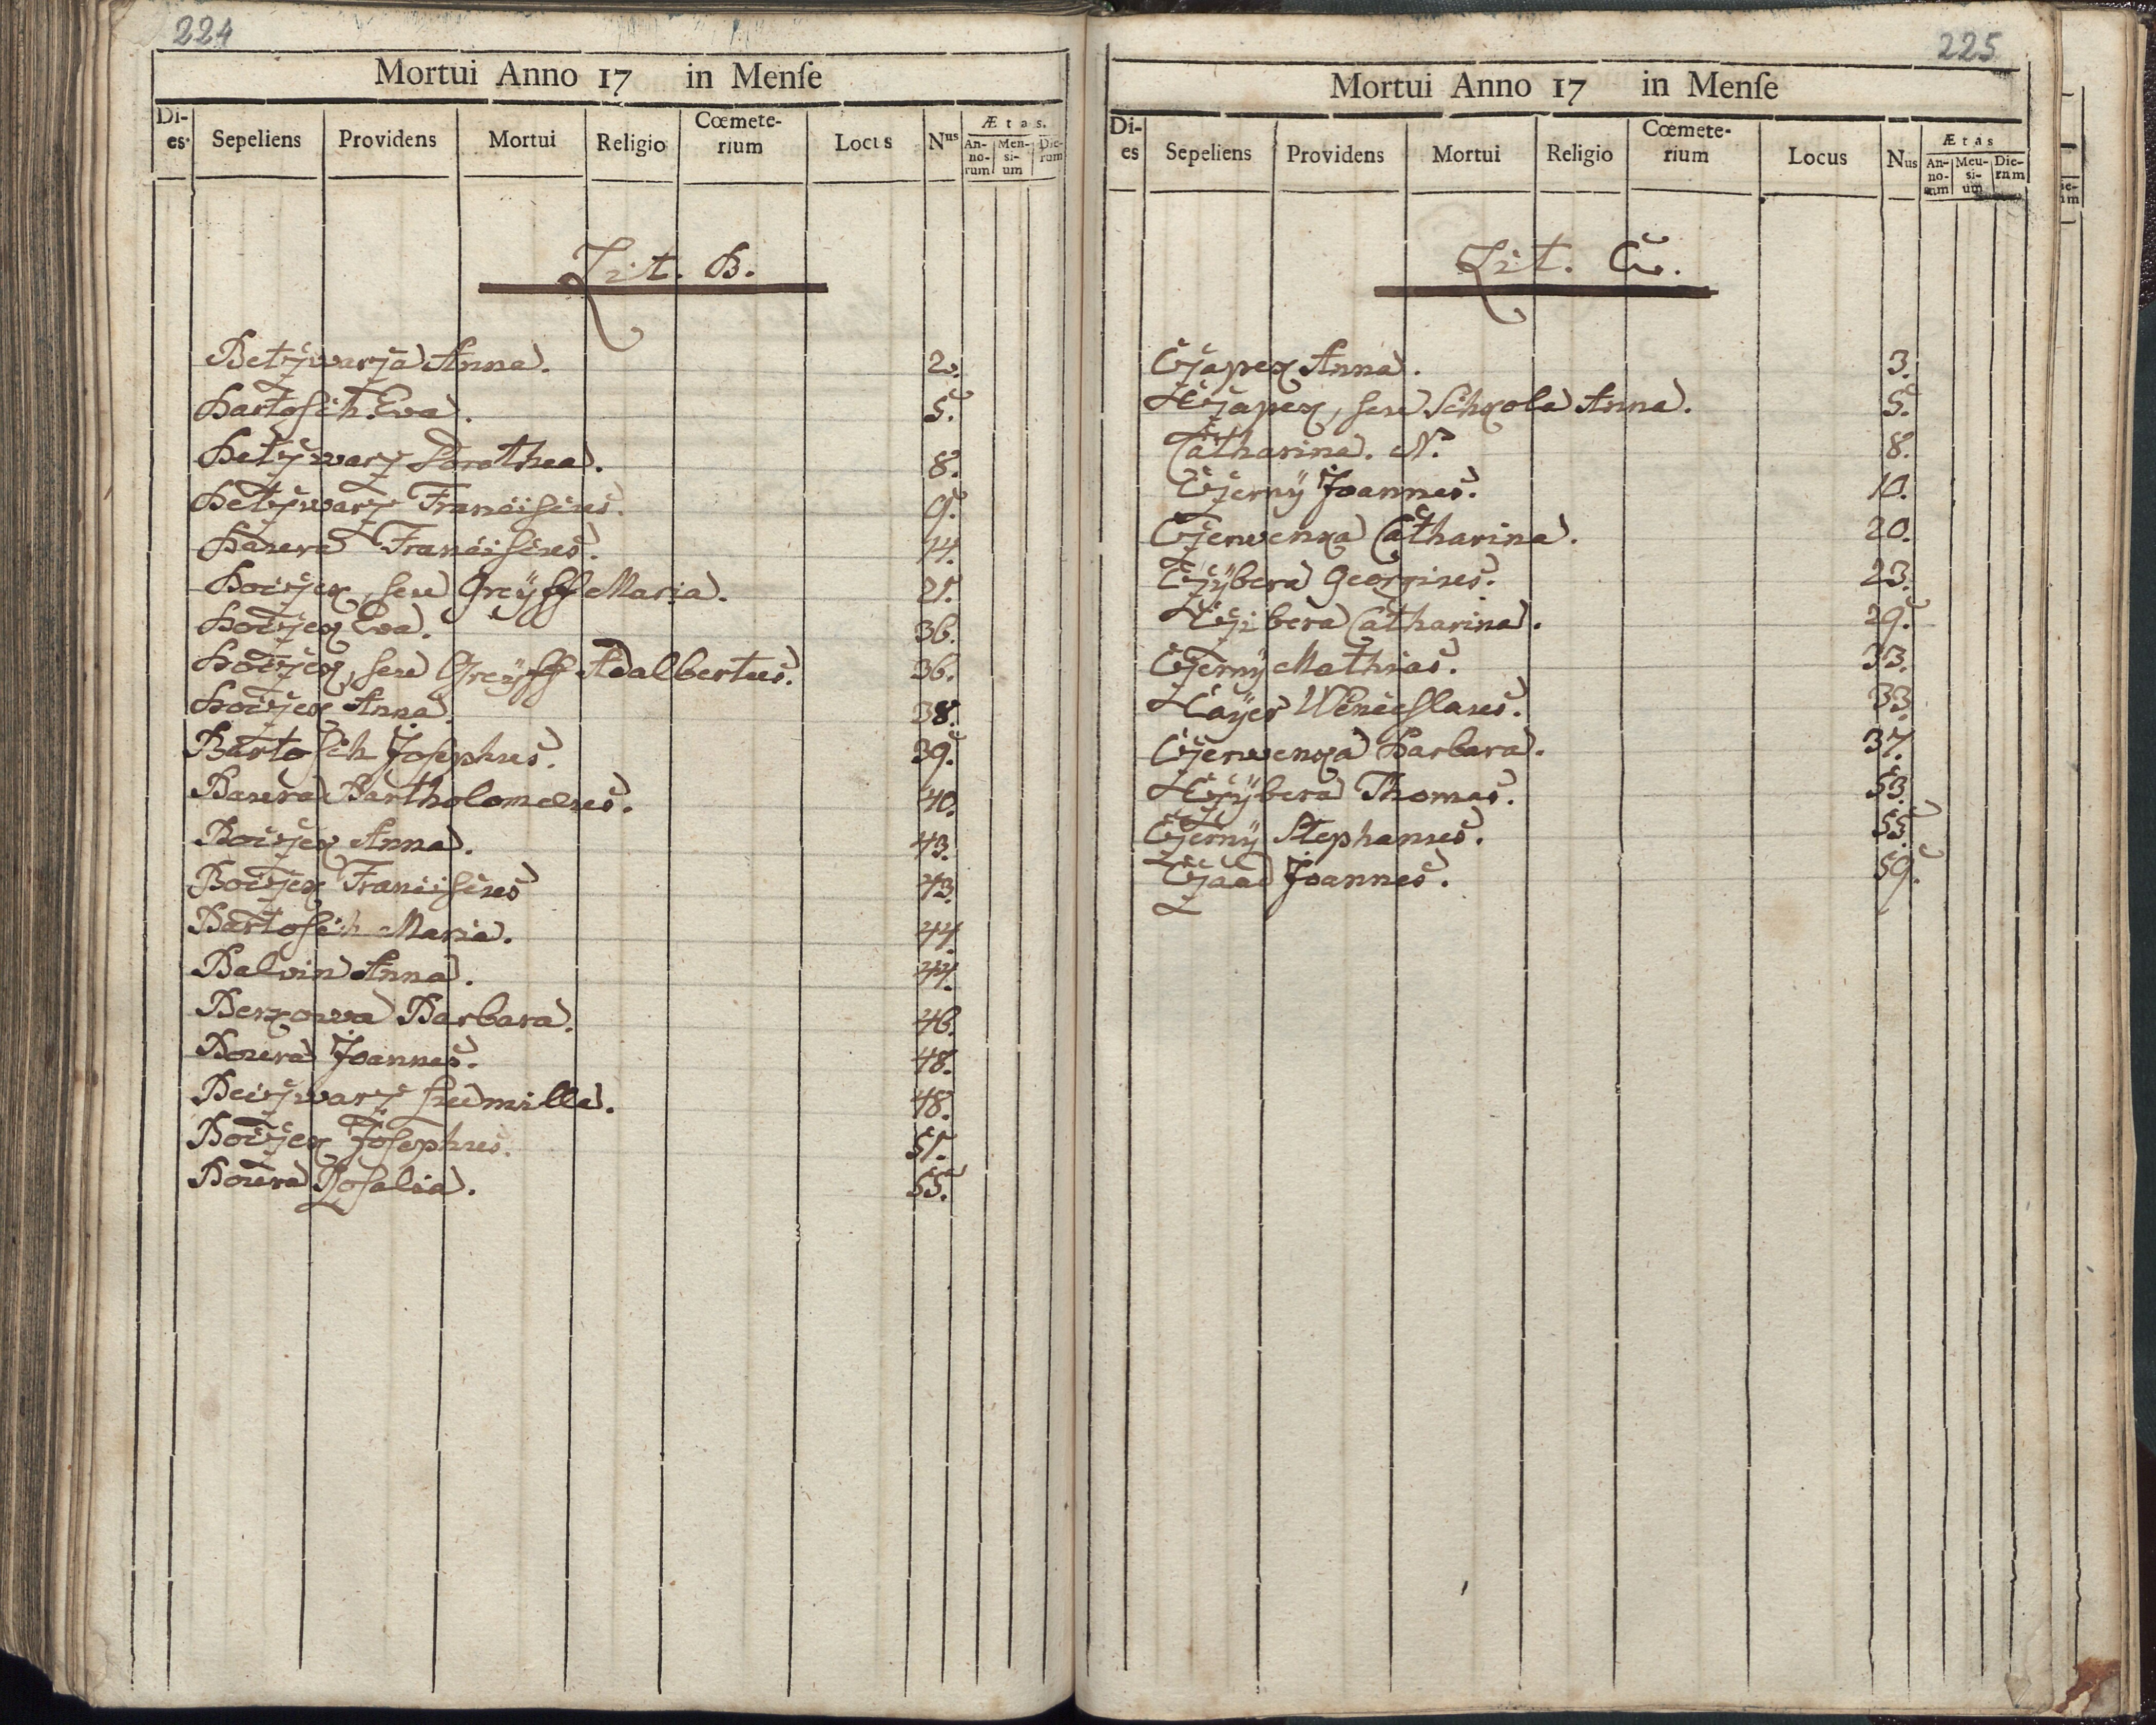 224
Mortui Anno 17 in Menſe
Di-es. Sepeliens Providens Mortui Religio Cœmete-rium Locus Nus Ætas. An-no-rum Men-si-um Die-rum
Lit. B.
Betzwarza Anna. 2.
Bartosch Eva. 5.
Betzwarz Dorothea. 8.
Betzwarz Franciscus. 9.
Baura Franciscus. 14.
Boczek, seu Greÿff Maria. 21.
Boczek Eva. 36.
Boczek, seu Greÿff Adalbertus. 36.
Boczek Anna. 38.
Bartosch Josephus. 39.
Baura Bartholomæus. 40.
Boczek Anna. 43.
Boczek Franciscus 43.
Bartosch Maria. 44.
Balvin Anna. 44.
Berkowa Barbara. 46.
Boura Joannes. 48.
Beczwarz Ludmilla. 48.
Boczek Josephus. 51.
Boura Rosalia. 55.
225
Mortui Anno 17 in Menſe
Di-es Sepeliens Providens Mortui Religio Cœmete-rium Locus Nus Ætas An-no-rum Meu-si-um Die-rum
Lit. C.
Czapek Anna. 3.
Czapek, seu Schkola Anna. 5.
Catharina. N. 8.
Czernÿ Joannes. 10.
Czerwenka Catharina. 20.
Czÿbera Georgius. 23.
Czibera Catharina. 29.
Czernÿ Mathias. 33.
Caÿer Wenceslaus. 33.
Czerwenka Barbara. 37.
Czÿbera Thomas. 53.
Czernÿ Stephanus. 55.
Czaad Joannes. 59.